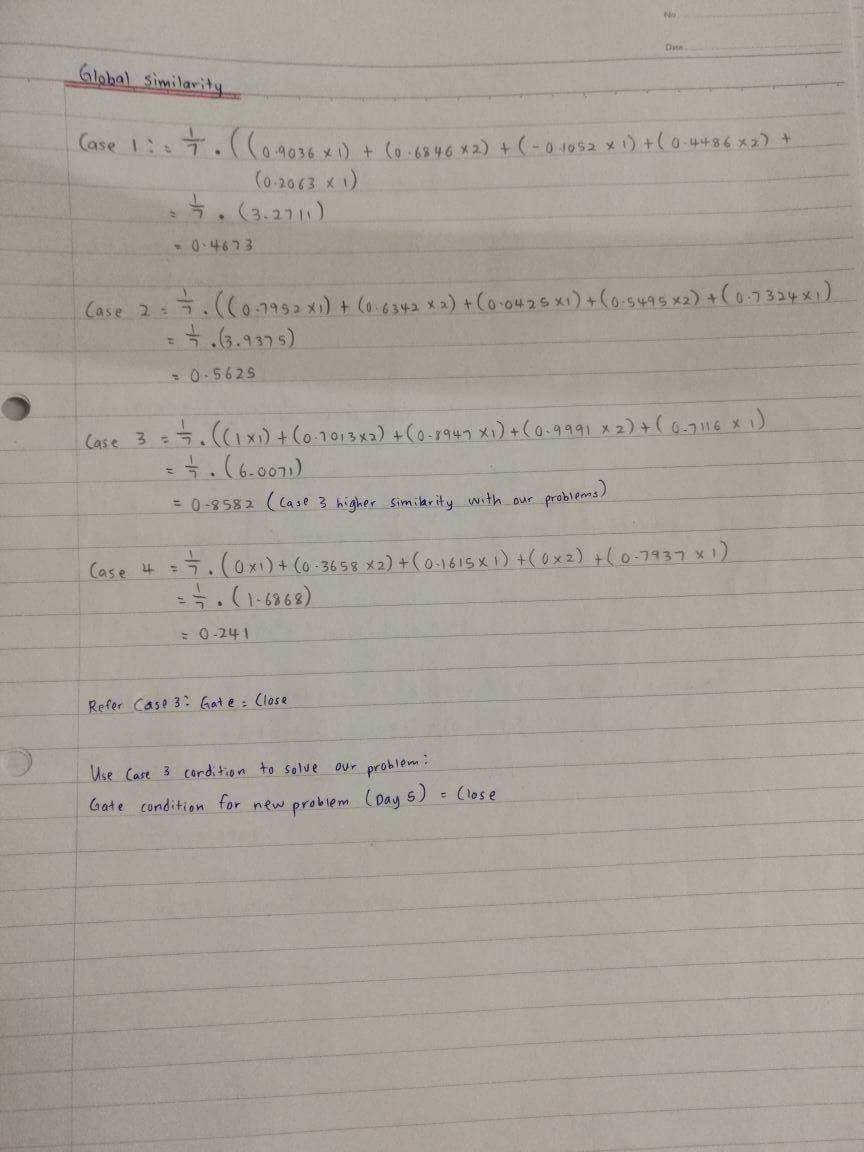 No
Date
Global similarity
Case 1 : = 1/7 . ((0.9036 x 1) + (0.6846 x 2) + (-0.1052 x 1) + (0.4486 x 2) +
(0.2063 x 1)
= 1/7 . (3.2711)
= 0.4673
Case 2 = 1/7 . ((0.7952 x 1) + (0.6342 x 2) + (0.0425 x 1) + (0.5495 x 2) + (0.7324 x 1)
= 1/7 . (3.9375)
= 0.5625
Case 3 = 1/7 . ((1 x 1) + (0.7013 x 2) + (0.8947 x 1) + (0.9991 x 2) + (0.7116 x 1)
= 1/7 . (6.0071)
= 0.8582 (Case 3 higher similarity with our problems)
Case 4 = 1/7 . (0 x 1) + (0.3658 x 2) + (0.1615 x 1) + (0 x 2) + (0.7937 x 1)
= 1/7 . (1.6868)
= 0.241
Refer Case 3 : Gate = Close
Use Case 3 condition to solve our problem :
Gate condition for new problem (Day 5) = Close